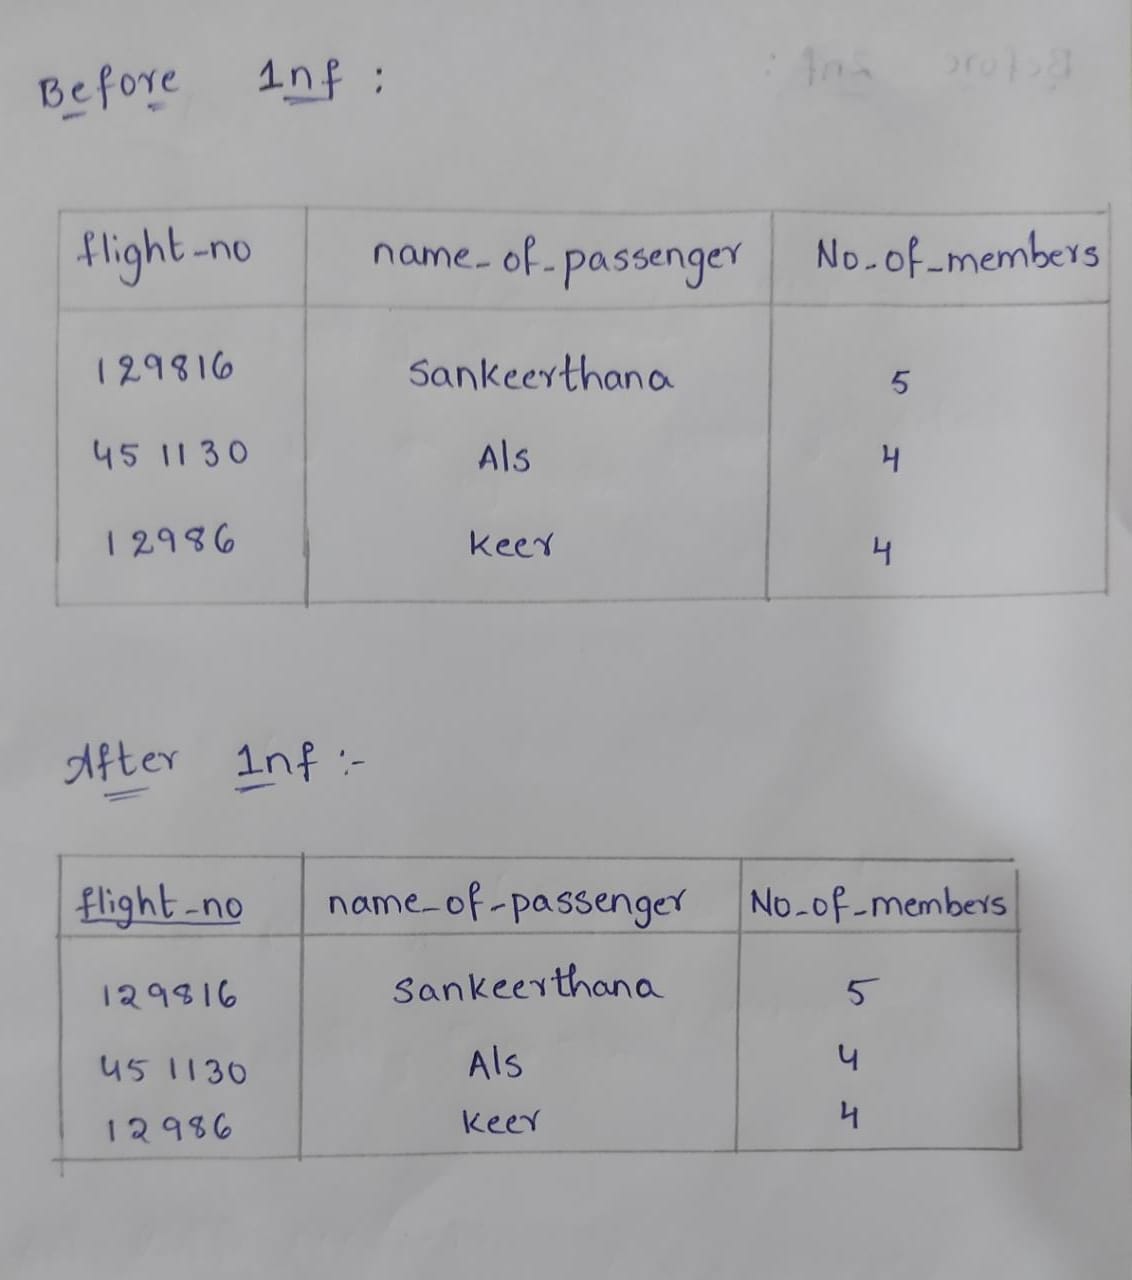 Before 1nf :
flight-no name-of-passenger No-of-members
129816 Sankeerthana 5
45 1130 Als 4
12986 Keer 4
After 1nf :-
flight-no name-of-passenger No-of-members
129816 Sankeerthana 5
45 1130 Als 4
12986 Keer 4